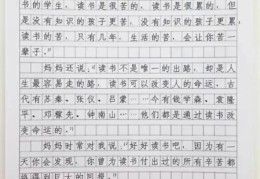 书的学生，读书是很苦的，读书是很累的，但
是没有知识的孩子更苦，没有知识的孩子更累，
读书的苦，只有几年，生活的苦，会让你苦一
辈子。”
妈妈还说，“读书不是唯一的出路，却是人
生最容易走的路，读书可以改变人的命运。古
代有苏秦、张仪、吕蒙……今有钱学森、袁隆
平、邓稼先、钟南山……他们都是通过读书改
变命运的。”
妈妈时常对我说，“好好读书吧，因为有一
天你会发现，你曾为读书付出过的所有辛苦都